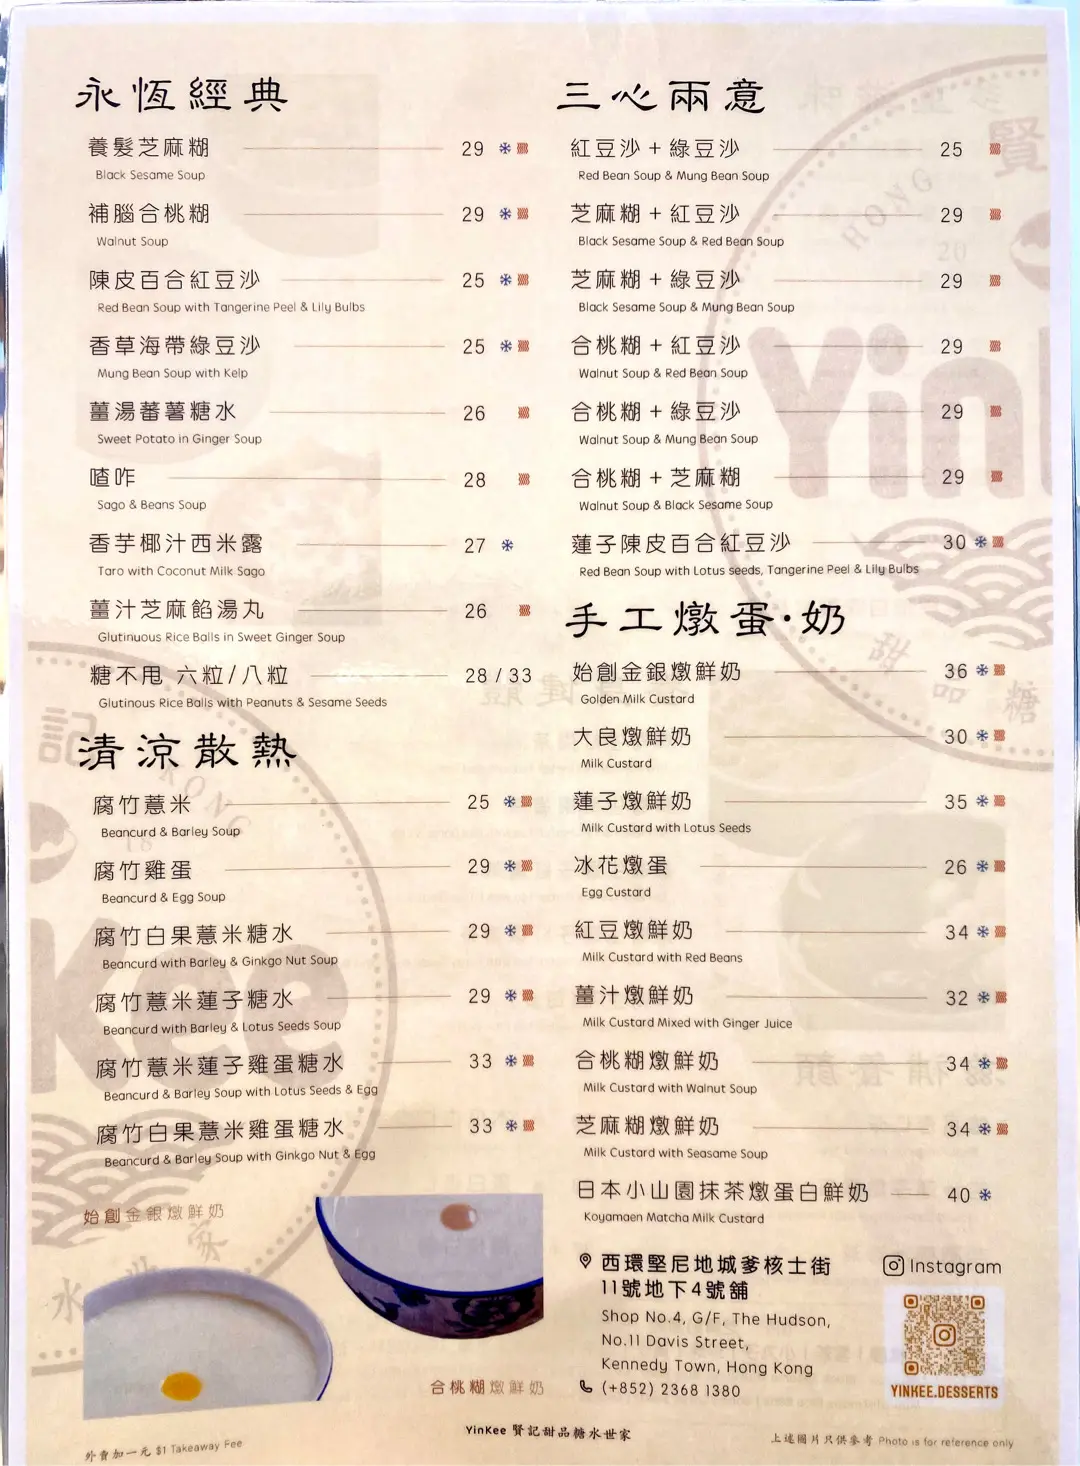 永恆經典
養髮芝麻糊 29
Black Sesame Soup
補腦合桃糊 29
Walnut Soup
陳皮百合紅豆沙 25
Red Bean Soup with Tangerine Peel & Lily Bulbs
香草海帶綠豆沙 25
Mung Bean Soup with Kelp
薑湯蕃薯糖水 26
Sweet Potato in Ginger Soup
喳咋 28
Sago & Beans Soup
香芋椰汁西米露 27
Taro with Coconut Milk Sago
薑汁芝麻餡湯丸 26
Glutinuous Rice Balls in Sweet Ginger Soup
糖不甩 六粒/八粒 28 / 33
Glutinous Rice Balls with Peanuts & Sesame Seeds
清涼散熱
腐竹薏米 25
Beancurd & Barley Soup
腐竹雞蛋 29
Beancurd & Egg Soup
腐竹白果薏米糖水 29
Beancurd with Barley & Ginkgo Nut Soup
腐竹薏米蓮子糖水 29
Beancurd with Barley & Lotus Seeds Soup
腐竹薏米蓮子雞蛋糖水 33
Beancurd & Barley Soup with Lotus Seeds & Egg
腐竹白果薏米雞蛋糖水 33
Beancurd & Barley Soup with Ginkgo Nut & Egg
始創金銀燉鮮奶
合桃糊燉鮮奶
外賣加一元 $1 Takeaway Fee
三心兩意
紅豆沙 + 綠豆沙 25
Red Bean Soup & Mung Bean Soup
芝麻糊 + 紅豆沙 29
Black Sesame Soup & Red Bean Soup
芝麻糊 + 綠豆沙 29
Black Sesame Soup & Mung Bean Soup
合桃糊 + 紅豆沙 29
Walnut Soup & Red Bean Soup
合桃糊 + 綠豆沙 29
Walnut Soup & Mung Bean Soup
合桃糊 + 芝麻糊 29
Walnut Soup & Black Sesame Soup
蓮子陳皮百合紅豆沙 30
Red Bean Soup with Lotus seeds, Tangerine Peel & Lily Bulbs
手工燉蛋·奶
始創金銀燉鮮奶 36
Golden Milk Custard
大良燉鮮奶 30
Milk Custard
蓮子燉鮮奶 35
Milk Custard with Lotus Seeds
冰花燉蛋 26
Egg Custard
紅豆燉鮮奶 34
Milk Custard with Red Beans
薑汁燉鮮奶 32
Milk Custard Mixed with Ginger Juice
合桃糊燉鮮奶 34
Milk Custard with Walnut Soup
芝麻糊燉鮮奶 34
Milk Custard with Seasame Soup
日本小山園抹茶燉蛋白鮮奶 40
Koyamaen Matcha Milk Custard
西環堅尼地城爹核士街
11號地下4號舖
Shop No.4, G/F, The Hudson,
No.11 Davis Street,
Kennedy Town, Hong Kong
(+852) 2368 1380
Instagram
YINKEE.DESSERTS
YinKee 賢記甜品糖水世家
上述圖片只供參考 Photo is for reference only